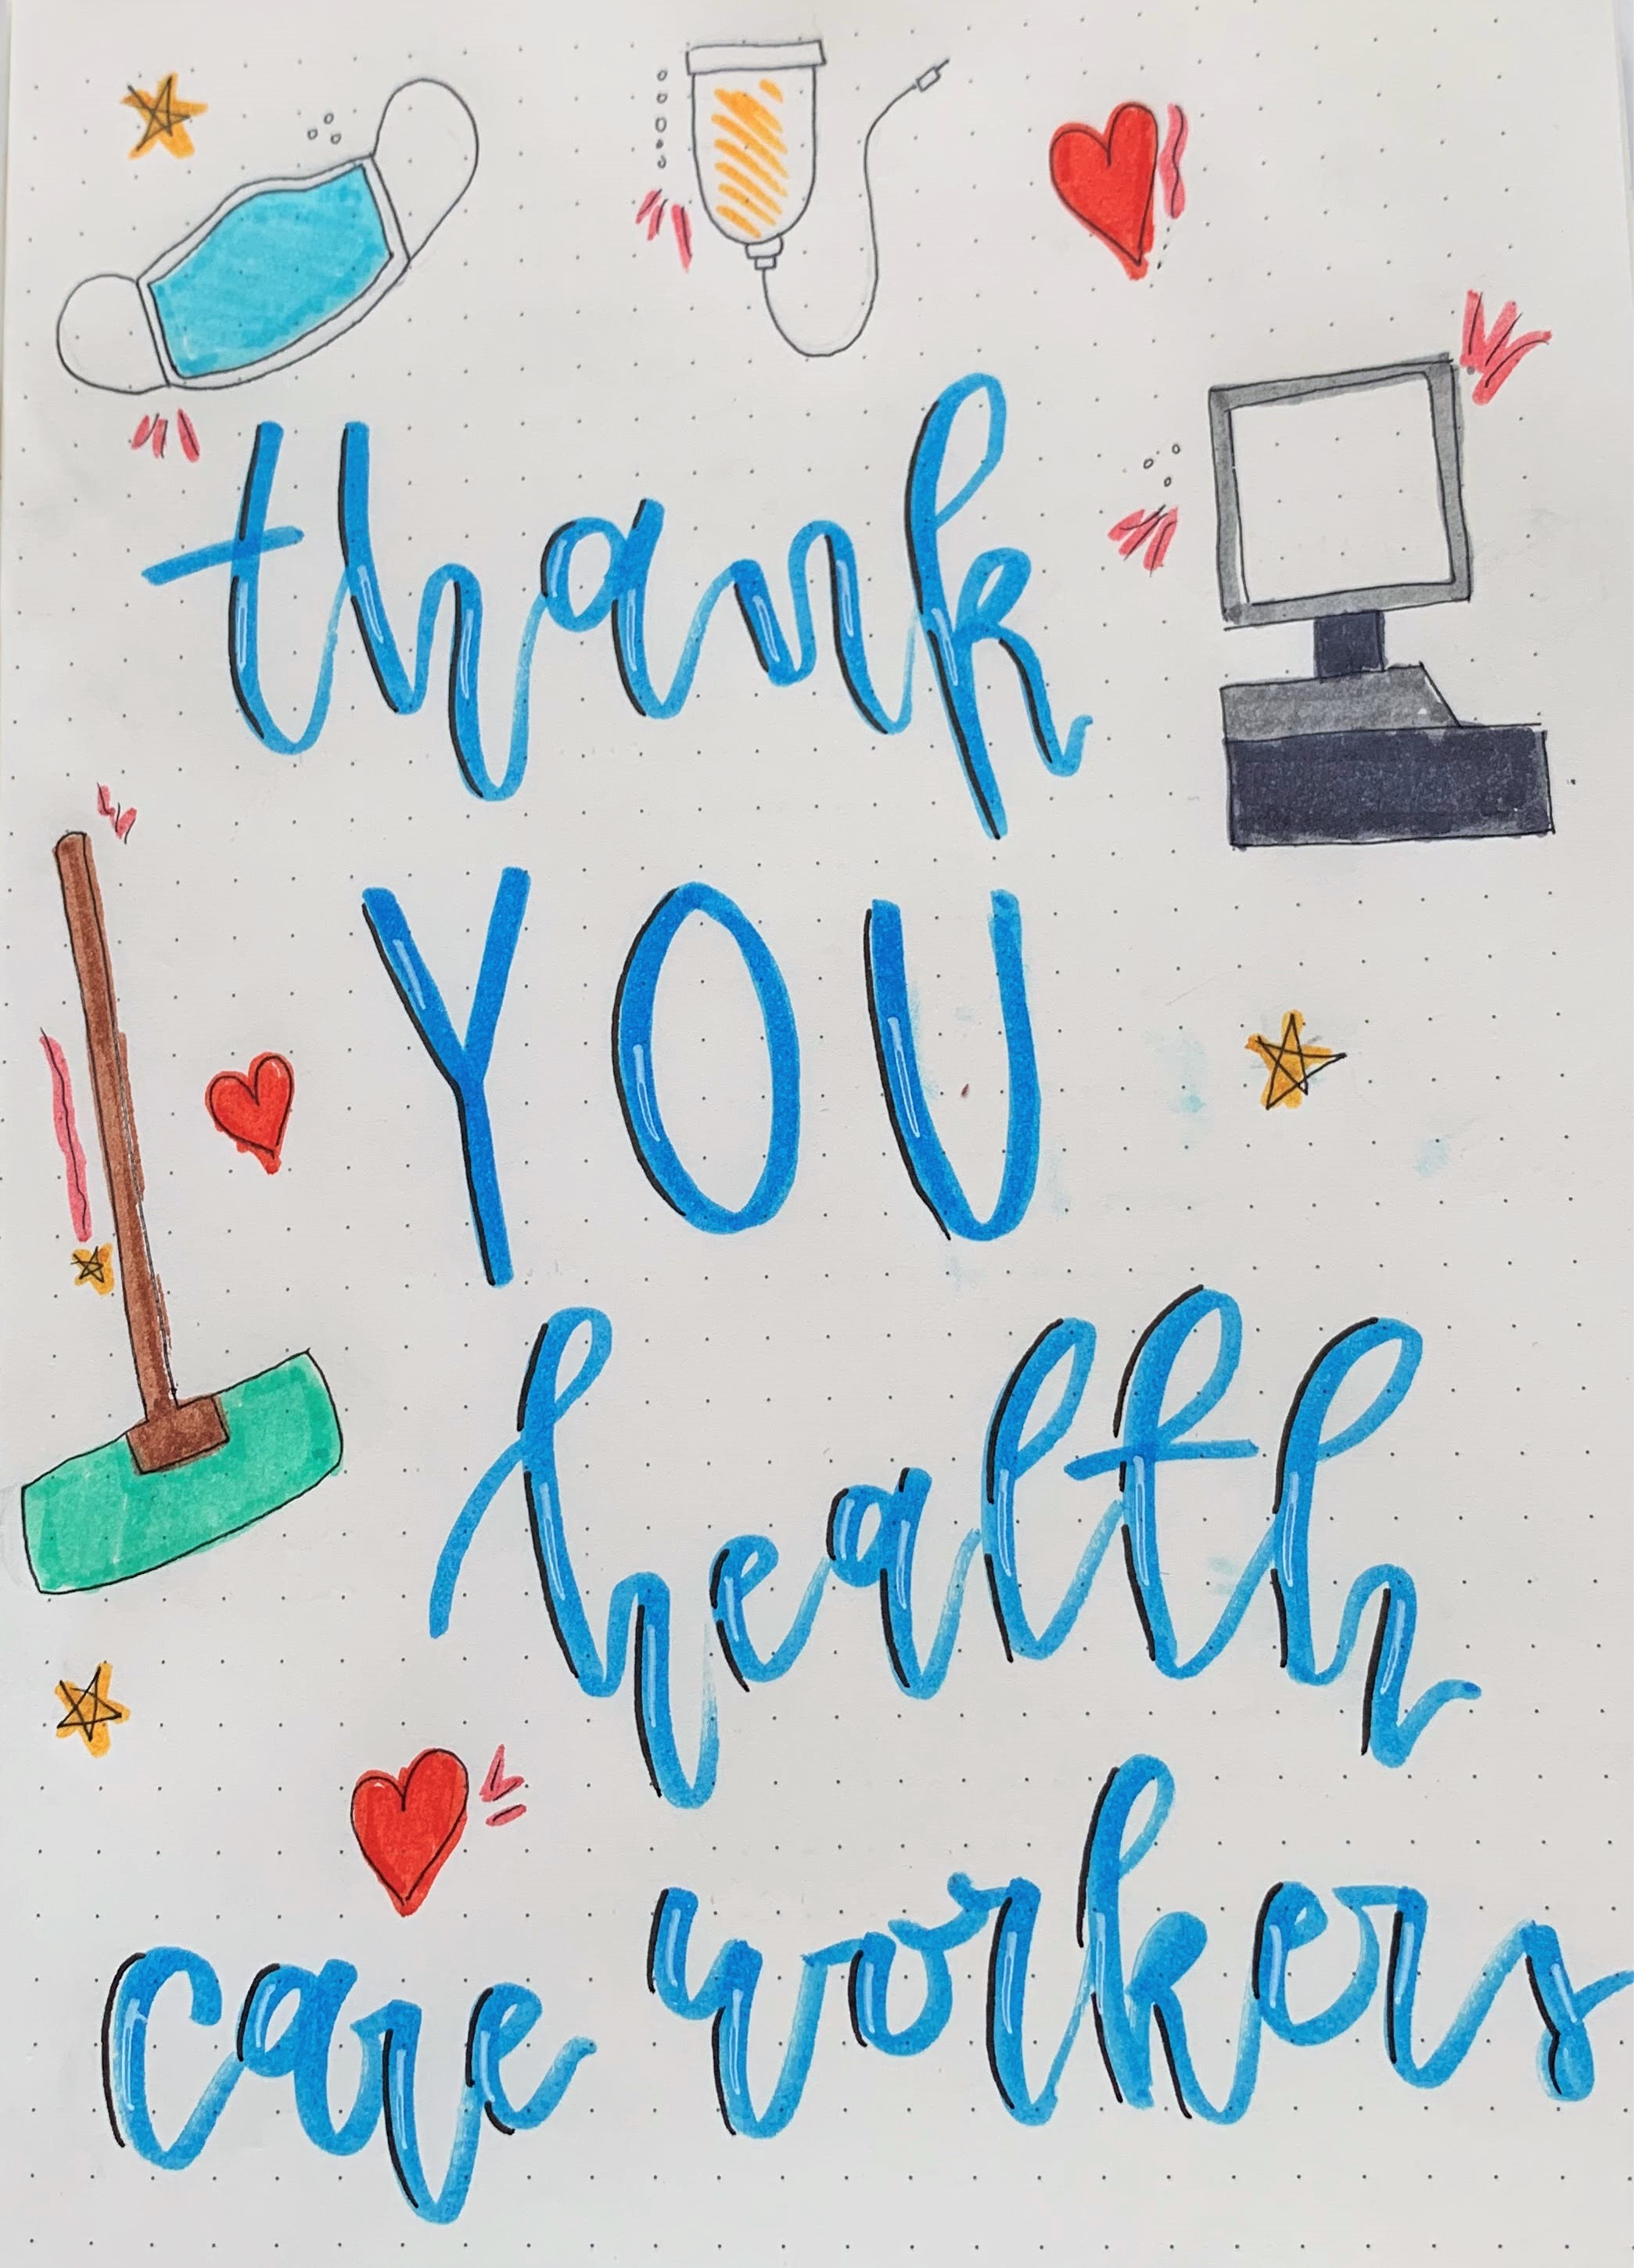 thank
YOU
health
care workers